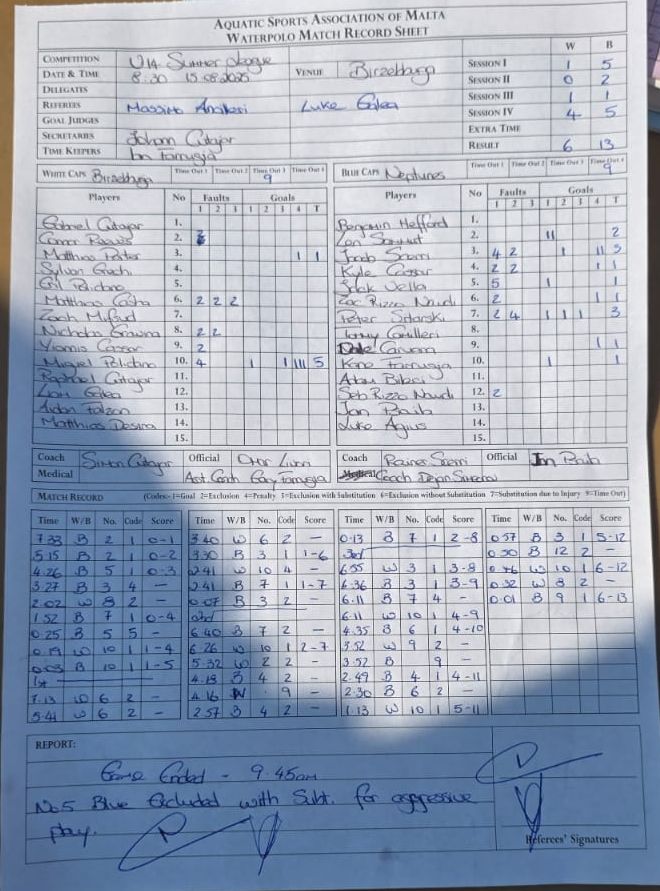 AQUATIC SPORTS ASSOCIATION OF MALTA
WATERPOLO MATCH RECORD SHEET
W B
COMPETITION U14 Summer League SESSION I 1 5
DATE & TIME 8:30 15.08.2025 VENUE Birzebbuga SESSION II 0 2
DELEGATES SESSION III 1 1
REFEREES Massimo Luke Galea SESSION IV 4 5
GOAL JUDGES EXTRA TIME
SECRETARIES Johann Cutajar RESULT 6 13
TIME KEEPERS Ian Farrugia
WHITE CAPS Birzebbuga Time Out 1 Time Out 2 Time Out 3 9 Time Out 4 BLUE CAPS Neptunes Time Out 1 Time Out 2 Time Out 3 Time Out 4 9
Players No Faults Goals Players No Faults Goals
1 2 3 1 2 3 4 T 1 2 3 1 2 3 4 T
Gabriel Cutajar 1. Benjamin Hefford 1.
2. 2. 11 2
Matthias 3. 1 1 Jacob 3. 4 2 1 11 3
Sylvon Grech 4. Kyle Cassar 4. 2 2 1 1
5. Vella 5. 5 1 1
Matthias 6. 2 2 2 Zac Rizzo Naudi 6. 2 1 1
Zach Mifsud 7. Peter 7. 2 4 1 1 1 3
Nicholas 8. 2 2 Tommy Camilleri 8.
Cassar 9. 2 Caruana 9. 1 1
Miguel Polidano 10. 4 1 1 111 5 Farrugia 10. 1 1
Raphael Cutajar 11. 11.
Liam Galea 12. Seb Rizzo Naudi 12. 2
Aidan Falzon 13. Jan 13.
Matthias Desira 14. Luke Agius 14.
15. 15.
Coach Simon Cutajar Official Coach Official
Medical Ast. Coach Gary Farrugia Coach Dejan
MATCH RECORD (Codes:- 1=Goal 2=Exclusion 4=Penalty 5=Exclusion with Substitution 6=Exclusion without Substitution 7=Substitution due to Injury 9=Time Out)
Time W/B No. Code Score Time W/B No. Code Score Time W/B No. Code Score Time W/B No. Code Score
7.33 B 2 1 0-1 3.40 W 6 2 – 0.13 B 7 1 2-8 0.57 B 3 1 5-12
5.15 B 2 1 0-2 3.30 B 3 1 1-6 3rd 0.50 B 12 2 –
4.26 B 5 1 0-3 2.41 W 10 4 – 6.55 W 3 1 3-8 0.46 W 10 1 6-12
3.27 B 3 4 – 2.41 B 7 1 1-7 6.36 B 3 1 3-9 0.32 W 8 2 –
2.02 W 8 2 – 0.07 B 3 2 – 6.11 B 7 4 – 0.01 B 9 1 6-13
1.52 B 7 1 0-4 2nd 6.11 W 10 1 4-9
0.25 B 5 5 – 6.40 B 7 2 – 4.35 B 6 1 4-10
0.19 W 10 1 1-4 6.26 W 10 1 2-7 3.52 W 9 2 –
0.03 B 10 1 1-5 5.32 W 2 2 – 3.52 B 9 –
1st 4.18 B 4 2 – 2.49 B 4 1 4-11
7.13 W 6 2 – 4.16 W 9 – 2.30 B 6 2 –
5.41 W 6 2 – 2.57 B 4 2 – 1.13 W 10 1 5-11
REPORT:
Game Ended - 9.45am
No5 Blue Excluded with Subt. for aggressive
play.
Referees' Signatures